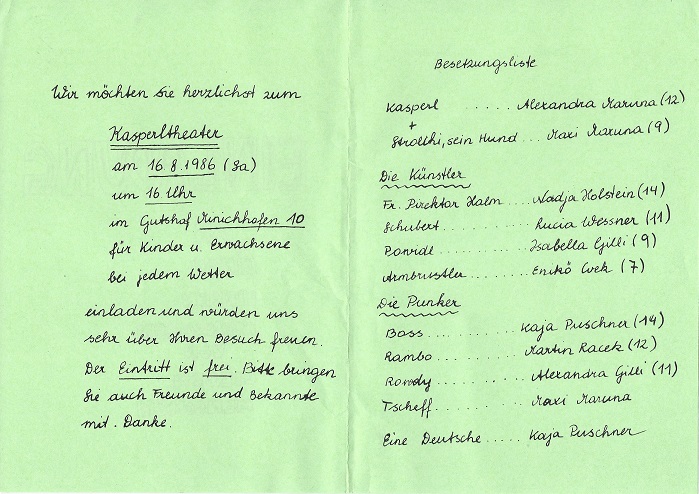 Wir möchten Sie herzlichst zum
Kasperltheater
am 16.8.1986 (Sa)
um 16 Uhr
im Gutshof 10
für Kinder u. Erwachsene
bei jedem Wetter
einladen und würden uns
sehr über Ihren Besuch freuen.
Der Eintritt ist frei. Bitte bringen
Sie auch Freunde und Bekannte
mit. Danke.
Besetzungsliste
Kasperl ..... Alexandra Maruna (12)
+
Strolchi, sein Hund ... Maxi Maruna (9)
Die Künstler
Fr. Direktor Halm ... Nadja Holstein (14)
Schubert ....... Lucia Wessner (11)
Powidl ........ Isabella Gilli (9)
Armbrustler ....... Enikö (7)
Die Punker
Boss ........ Kaja Puschner (14)
Rambo ......... Martin Racek (12)
Rowdy ......... Alexandra Gilli (11)
Tscheff ........ Maxi Maruna
Eine Deutsche ..... Kaja Puschner